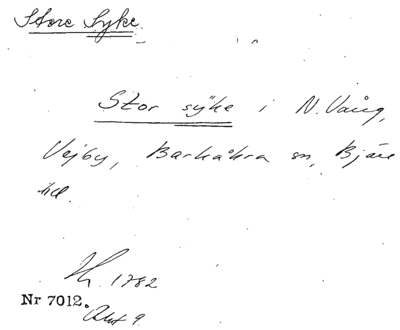 Store Syke.
Stor sÿke i N. Vång,
Vejby, Barkåkra sn, Bjäre
hd
1782
Nr 7012.
Akt 9.